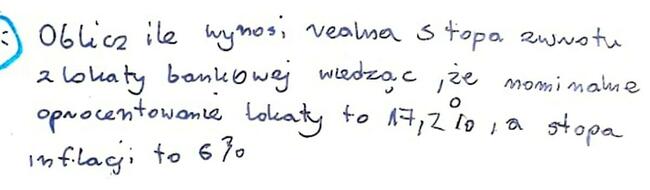 : Oblicz ile wynosi realna stopa zwrotu
z lokaty bankowej wiedząc, że nominalne
oprocentowanie lokaty to 17,2%, a stopa
inflacji to 6%